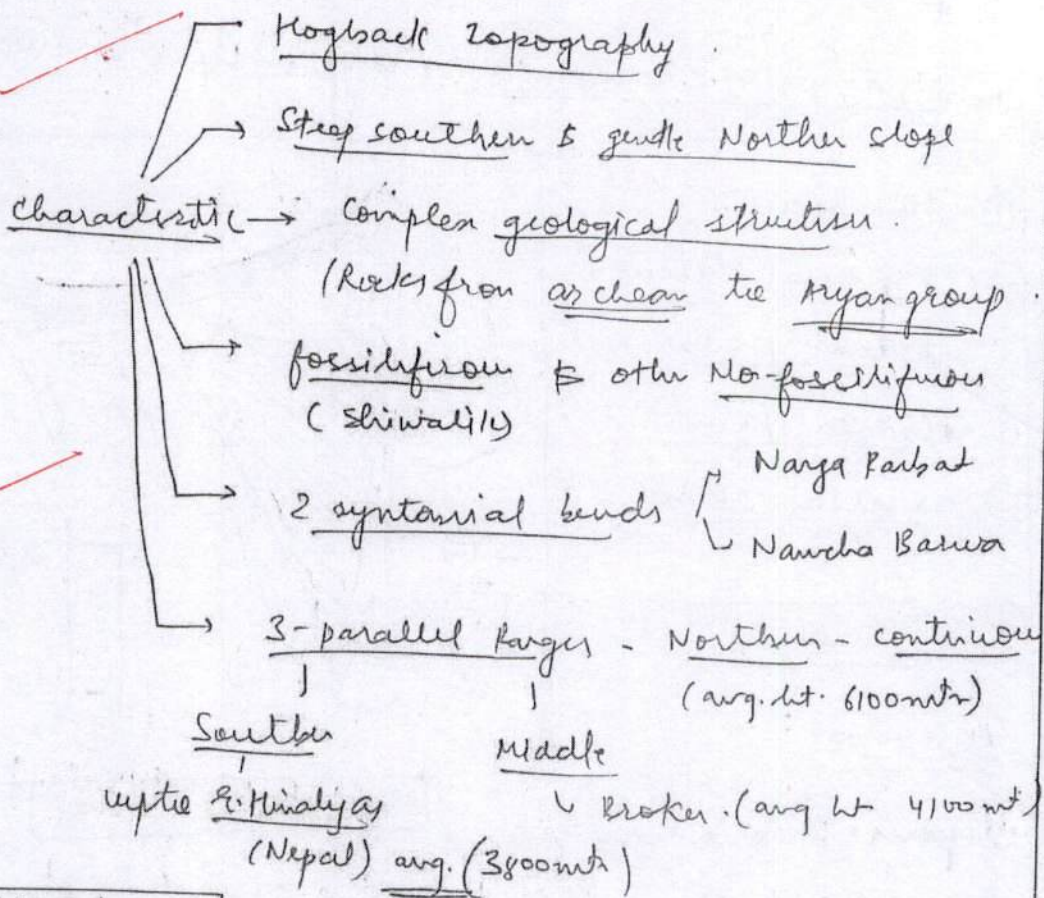 Hogback Topography
Steep southern & gentle Norther slope
characterstic → Complex geological structure.
(Rocks from archean to Aryan group.
fossiliferous & other No-fossiliferous
(Shiwalik)
2 syntaxial bends
Nanga Parbat
Namcha Barwa
3-parallel Ranges - Northern - continuous
(avg. ht. 6100mtr)
Southern
Middle
upto E. Himaliyas
Broken. (avg ht 4100mt)
(Nepal) avg. (3800mtr)